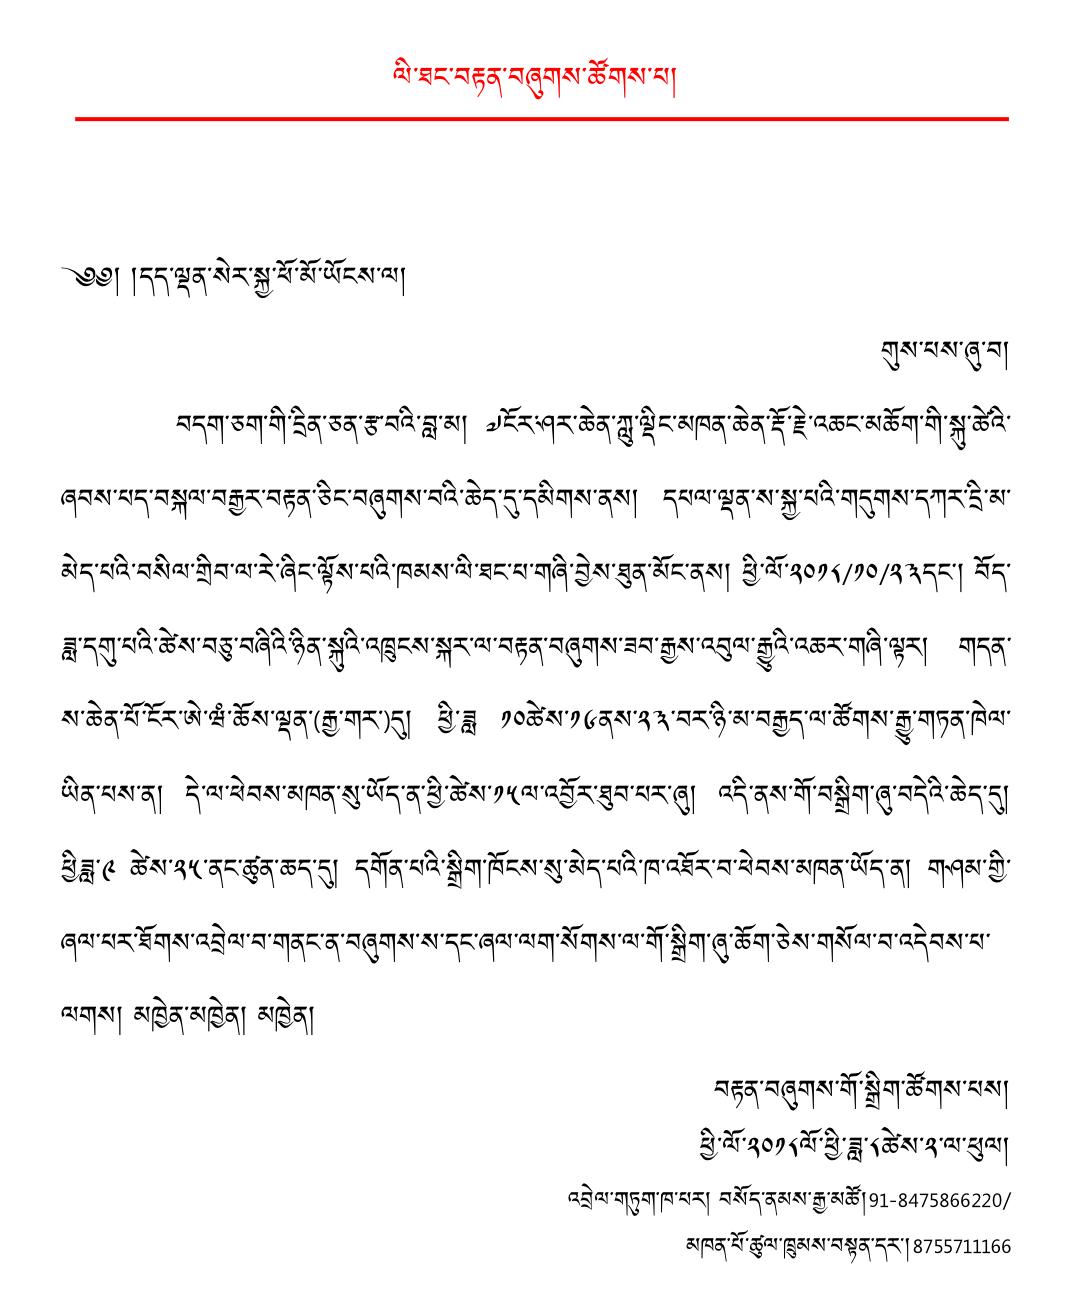 ལི་ཐང་བརྟན་བཞུགས་ཚོགས་པ།
༄༅། །དད་ལྡན་སེར་སྐྱ་ཕོ་མོ་ཡོངས་ལ།
གུས་པས་ཞུ་བ།
བདག་ཅག་གི་དྲིན་ཅན་རྩ་བའི་བླ་མ། ༧ངོར་ཤར་ཆེན་ཀླུ་ལྡིང་མཁན་ཆེན་རྡོ་རྗེ་འཆང་མཆོག་གི་སྐུ་ཚེའི་
ཞབས་པད་བསྐལ་བརྒྱར་བརྟན་ཅིང་བཞུགས་བའི་ཆེད་དུ་དམིགས་ནས། དཔལ་ལྡན་ས་སྐྱ་པའི་གདུགས་དཀར་དྲི་མ་
མེད་པའི་བསིལ་གྲིབ་ལ་རེ་ཞིང་ལྟོས་པའི་ཁམས་ལི་ཐང་པ་གཞི་བྱེས་ཐུན་མོང་ནས། ཕྱི་ལོ་༢༠༡༨/༡༠/༢༣དང་། བོད་
ཟླ་དགུ་པའི་ཚེས་བཅུ་བཞིའི་ཉིན་སྐུའི་འཁྲུངས་སྐར་ལ་བརྟན་བཞུགས་ཟབ་རྒྱས་འབུལ་རྒྱུའི་འཆར་གཞི་ལྟར། གདན་
ས་ཆེན་པོ་ངོར་ཨེ་ཝཾ་ཆོས་ལྡན་(རྒྱ་གར་)དུ། ཕྱི་ཟླ ༡༠ཚེས་༡༦ནས་༢༣་བར་ཉི་མ་བརྒྱད་ལ་ཚོགས་རྒྱུ་གཏན་ཁེལ་
ཡིན་པས་ན། དེ་ལ་ཕེབས་མཁན་སུ་ཡོད་ན་ཕྱི་ཚེས་༡༥ལ་འབྱོར་ཐུབ་པར་ཞུ། འདི་ནས་གོ་བསྒྲིག་ཞུ་བདེའི་ཆེད་དུ།
ཕྱི་ཟླ་༩ ཚེས་༢༥་ནང་ཚུན་ཆད་དུ། དགོན་པའི་སྒྲིག་ཁོངས་སུ་མེད་པའི་ཁ་འཐོར་བ་ཕེབས་མཁན་ཡོད་ན། གཤམ་གྱི་
ཞལ་པར་ཐོགས་འབྲེལ་བ་གནང་ན་བཞུགས་ས་དང་ཞལ་ལག་སོགས་ལ་གོ་སྒྲིག་ཞུ་ཆོག་ཅེས་གསོལ་བ་འདེབས་པ་
ལགས། མཁྱེན་མཁྱེན། མཁྱེན།
བརྟན་བཞུགས་གོ་སྒྲིག་ཚོགས་པས།
ཕྱི་ལོ་༢༠༡༨ལོ་ཕྱི་ཟླ་༨ཚེས་༢་ལ་ཕུལ།
འབྲེལ་གཏུག་ཁ་པར། བསོད་ནམས་རྒྱ་མཚོ།91-8475866220/
མཁན་པོ་ཚུལ་ཁྲུམས་བསྟན་དར་།8755711166